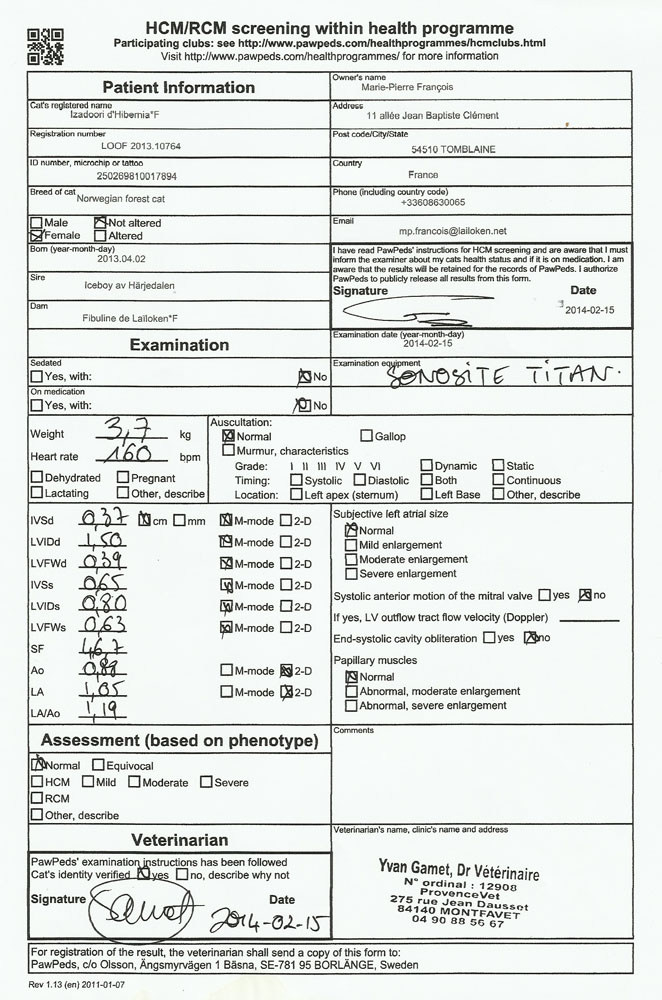 HCM/RCM screening within health programme
Participating clubs: see http://www.pawpeds.com/healthprogrammes/hcmclubs.html
Visit http://www.pawpeds.com/healthprogrammes/ for more information
Patient Information
Owner's name
Marie-Pierre François
Cat's registered name
Izadoori d'Hibernia*F
Address
11 allée Jean Baptiste Clément
Registration number
LOOF 2013.10764
Post code/City/State
54510 TOMBLAINE
ID number, microchip or tattoo
250269810017894
Country
France
Breed of cat
Norwegian forest cat
Phone (including country code)
+33608630065
Male Not altered
Female Altered
Email
mp.francois@lailoken.net
Born (year-month-day)
2013.04.02
Sire
Iceboy av Härjedalen
Dam
Fibuline de Laïloken*F
I have read PawPeds' instructions for HCM screening and are aware that I must
inform the examiner about my cats health status and if it is on medication. I am
aware that the results will be retained for the records of PawPeds. I authorize
PawPeds to publicly release all results from this form.
Signature Date
2014-02-15
Examination
Examination date (year-month-day)
2014-02-15
Sedated
Yes, with: No
Examination equipment
SONOSITE TITAN.
On medication
Yes, with: No
Weight 3,7 kg
Heart rate 160 bpm
Dehydrated Pregnant
Lactating Other, describe
Auscultation:
Normal Gallop
Murmur, characteristics
Grade: I II III IV V VI Dynamic Static
Timing: Systolic Diastolic Both Continuous
Location: Left apex (sternum) Left Base Other, describe
IVSd 0,37 cm mm M-mode 2-D
LVIDd 1,50 M-mode 2-D
LVFWd 0,39 M-mode 2-D
IVSs 0,65 M-mode 2-D
LVIDs 0,80 M-mode 2-D
LVFWs 0,63 M-mode 2-D
SF 46,7
Ao 0,88 M-mode 2-D
LA 1,05 M-mode 2-D
LA/Ao 1,19
Subjective left atrial size
Normal
Mild enlargement
Moderate enlargement
Severe enlargement
Systolic anterior motion of the mitral valve yes no
If yes, LV outflow tract flow velocity (Doppler)
End-systolic cavity obliteration yes no
Papillary muscles
Normal
Abnormal, moderate enlargement
Abnormal, severe enlargement
Assessment (based on phenotype)
Normal Equivocal
HCM Mild Moderate Severe
RCM
Other, describe
Comments
Veterinarian
PawPeds' examination instructions has been followed
Cat's identity verified yes no, describe why not
Signature Date
2014-02-15
Veterinarian's name, clinic's name and address
Yvan Gamet, Dr Vétérinaire
N° ordinal : 12908
ProvenceVet
275 rue Jean Dausset
84140 MONTFAVET
04 90 88 56 67
For registration of the result, the veterinarian shall send a copy of this form to:
PawPeds, c/o Olsson, Ängsmyrvägen 1 Bäsna, SE-781 95 BORLÄNGE, Sweden
Rev 1.13 (en) 2011-01-07